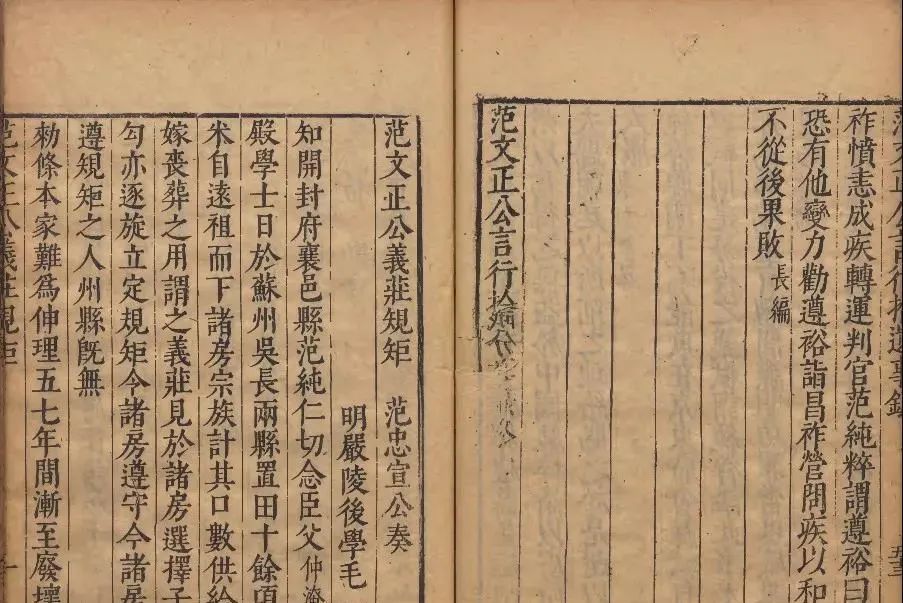 范文正公言行拾遺事錄
祚憤恚成疾轉運判官范純粹謂遵裕曰
恐有他變力勸遵裕詣昌祚營問疾以和
不從後果敗 長編
范文正公言行拾遺
范文正公義莊規矩 范忠宣公奏
明嚴陵後學毛
知開封府襄邑縣范純仁切念臣父仲淹
殿學士日於蘇州吳長兩縣置田十餘頃
米自遠祖而下諸房宗族計其口數供給
嫁喪葬之用謂之義莊見於諸房選擇子
勾亦逐旋立定規矩令諸房遵守今諸房
遵規矩之人州縣既無
勑條本家難為伸理五七年間漸至廢壞
范文正公義莊規矩 一